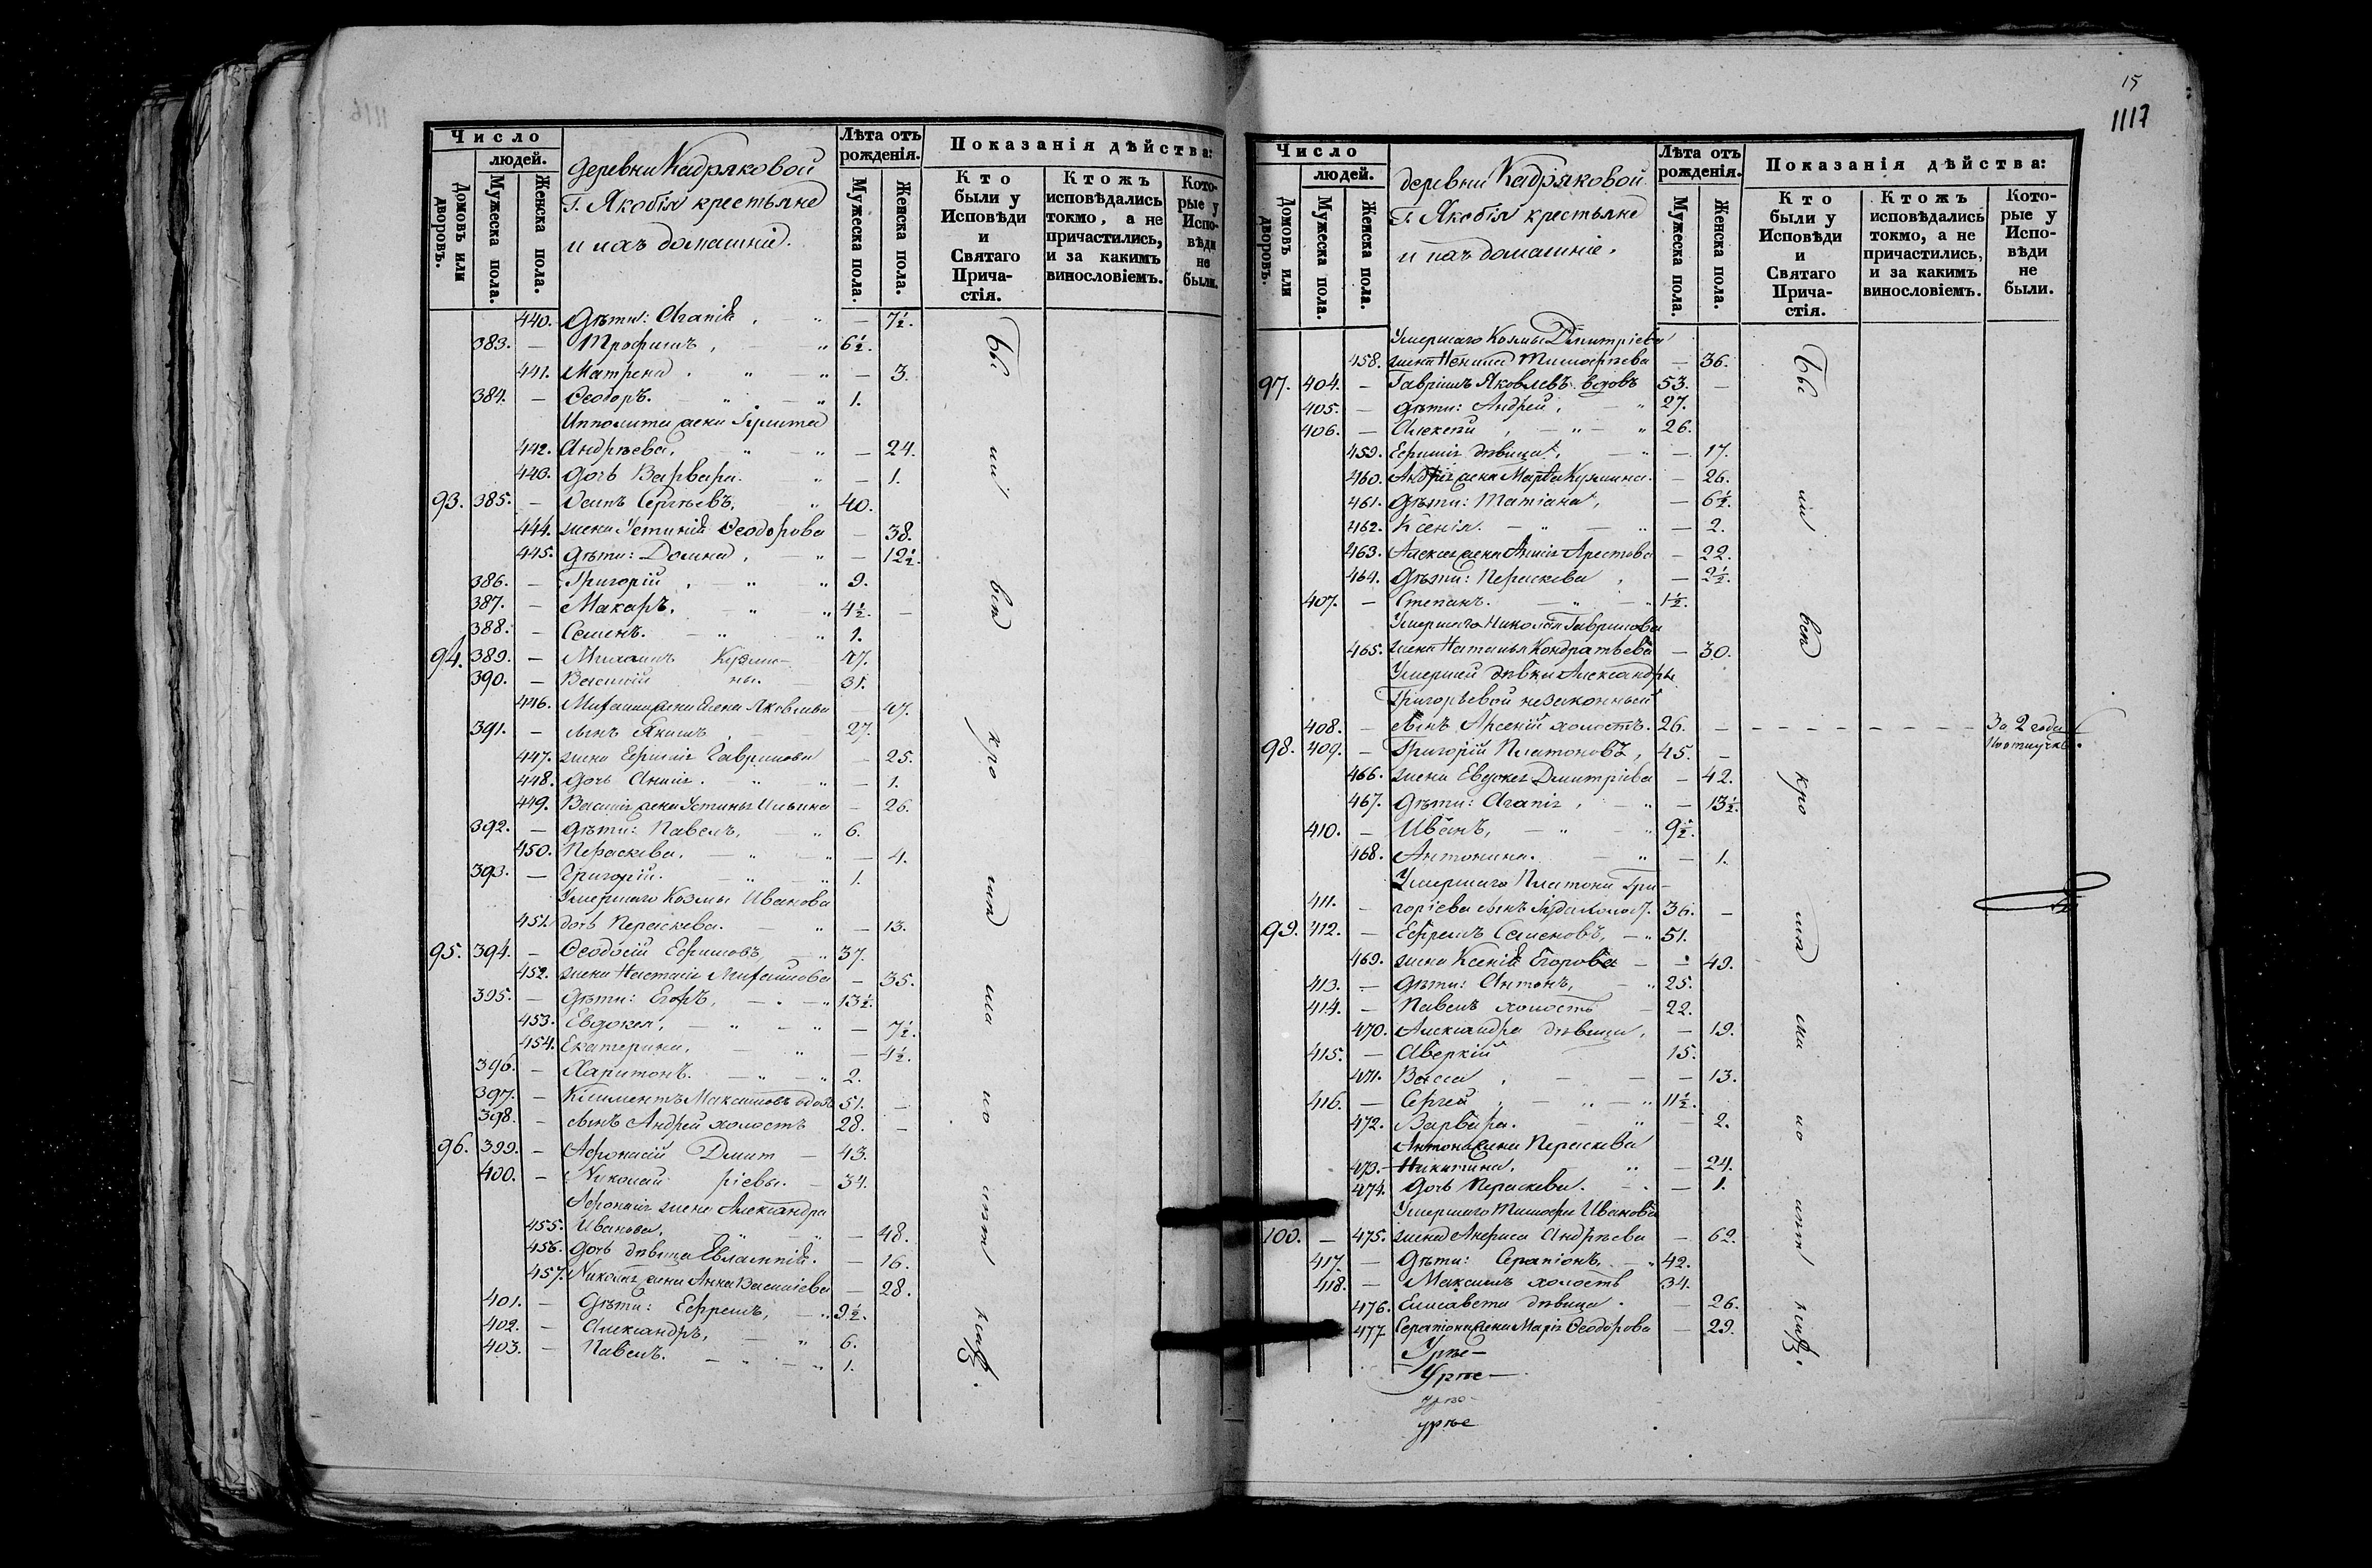 Число
людей.
Домовъ или дворовъ.
Мужеска пола.
Женска пола.
деревни Кадряковой
Г. Якобія крестьяне
и ихъ домашніе.
Лѣта отъ рожденія.
Мужеска пола.
Женска пола.
Показанія дѣйства:
Кто были у Исповѣди и Святаго Прича-стія.
Ктожъ исповѣдались токмо, а не причастились, и за какимъ винословіемъ.
Кото-рые у Испо-вѣди не были.
440. Дѣти: Агапія, — 7½.
383. — Трофимъ, 6½.
441. Матрена. — 3.
384. — Ѳеодоръ. 1.
Ипполита жена
442. Андрѣева, — 24.
443. дочь Варвара. — 1.
93. 385. — Осипъ Сергѣевъ, 40.
444. жена Устинія Ѳеодорова — 38.
445. Дѣти: Домна, — 12½.
386. — Григорій, 9.
387. — Макаръ, 4½. —
388. — Семенъ. 1.
94. 389. — Михаилъ Кузми- 47.
390. — Василій ны. 31.
446. Михаила жена Елена Яковлева — 47.
391. — сынъ Якимъ, 27.
447. жена Ефимія Гаврилова — 25.
448. дочь Анисія. — 1.
449. Василія жена Устинья Ильина — 26.
392. — дѣти: Павелъ, 6.
450. Параскева. — 4.
393. — Григорій. 1.
Умершаго Козмы Иванова
451. дочь Параскева. — 13.
95. 394. — Ѳеодосій Ефимовъ, 37.
452. жена Настасія Михайлова — 35.
395. — Дѣти: Егоръ, 13½.
453. Евдокея, — 7½.
454. Екатерина. — 4½.
396. — Харитонъ. 2.
397. — Климентъ Максимовъ вдовъ 51. —
398. — сынъ Андрей холостъ 28. —
96. 399. — Афонасій Дмит — 43.
400. — Николай ріевы. — 34.
Афонасія жена Александра
455. Иванова, — 48.
456. дочь дѣвица Евлампія. — 16.
457. Николая жена Анна Василіева — 28.
401. — Дѣти: Ефремъ, 9½.
402. — Александръ, 6.
403. — Павелъ. 1.
Бы ли всѣ кро мѣ ма ло лѣт
15
1117
Число
людей.
Домовъ или дворовъ.
Мужеска пола.
Женска пола.
деревни Кадряковой
Г. Якобія крестьяне
и ихъ домашніе.
Лѣта отъ рожденія.
Мужеска пола.
Женска пола.
Показанія дѣйства:
Кто были у Исповѣди и Святаго Прича-стія.
Ктожъ исповѣдались токмо, а не причастились, и за какимъ винословіемъ.
Кото-рые у Испо-вѣди не были.
Умершаго Козмы Димитріева
458. жена Ненила Тимофѣева — 36.
97. 404. — Гавріилъ Яковлевъ вдовъ 53. —
405. — дѣти: Андрей, 27.
406. — Алексѣй, 26.
459. Ефимія дѣвица, — 17.
460. Андрея жена Марѳа Кузмина. — 26.
461. Дѣти: Татіана, — 6½.
462. Ксенія. — 2.
463. Алексія жена — 22.
464. Дѣти: Параскева, — 2½.
407. — Степанъ. 1½.
Умершаго Николая Гаврилова
465. жена Наталья Кондратьева — 30.
Умершей дѣвки Александры
Григорьевой незаконный
408. — сынъ Арсеній холостъ. 26. — За 2 года
98. 409. — Григорій Платоновъ, 45. —
466. жена Евдокея Дмитріева — 42.
467. Дѣти: Агапія, — 13½.
410. — Иванъ, 9½.
468. Антонина. — 1.
Умершаго Платона Гри-
411. — горіева сынъ холост. 36. —
99. 412. — Ефремъ Семеновъ, 51.
469. жена Ксенія Егорова — 49.
413. — Дѣти: Антонъ, 25.
414. — Павелъ холостъ — 22.
470. Александра дѣвица, — 19.
415. — Аверкій 15.
471. Васса, — 13.
416. — Сергей, 11½.
472. Варвара. — 2.
Антона жена Параскева
473. Никитина, — 24.
474. дочь Параскева. — 1.
Умершаго Тимофея Иванова
100. — 475. жена Анфиса Андрѣева — 62.
417. — Дѣти: Серапіонъ, 42.
418. — Максимъ холостъ 34.
476. Елисавета дѣвица. — 26.
477 Серапіона жена Марія Ѳеодорова — 29.
Бы ли всѣ кро мѣ ма ло лѣт